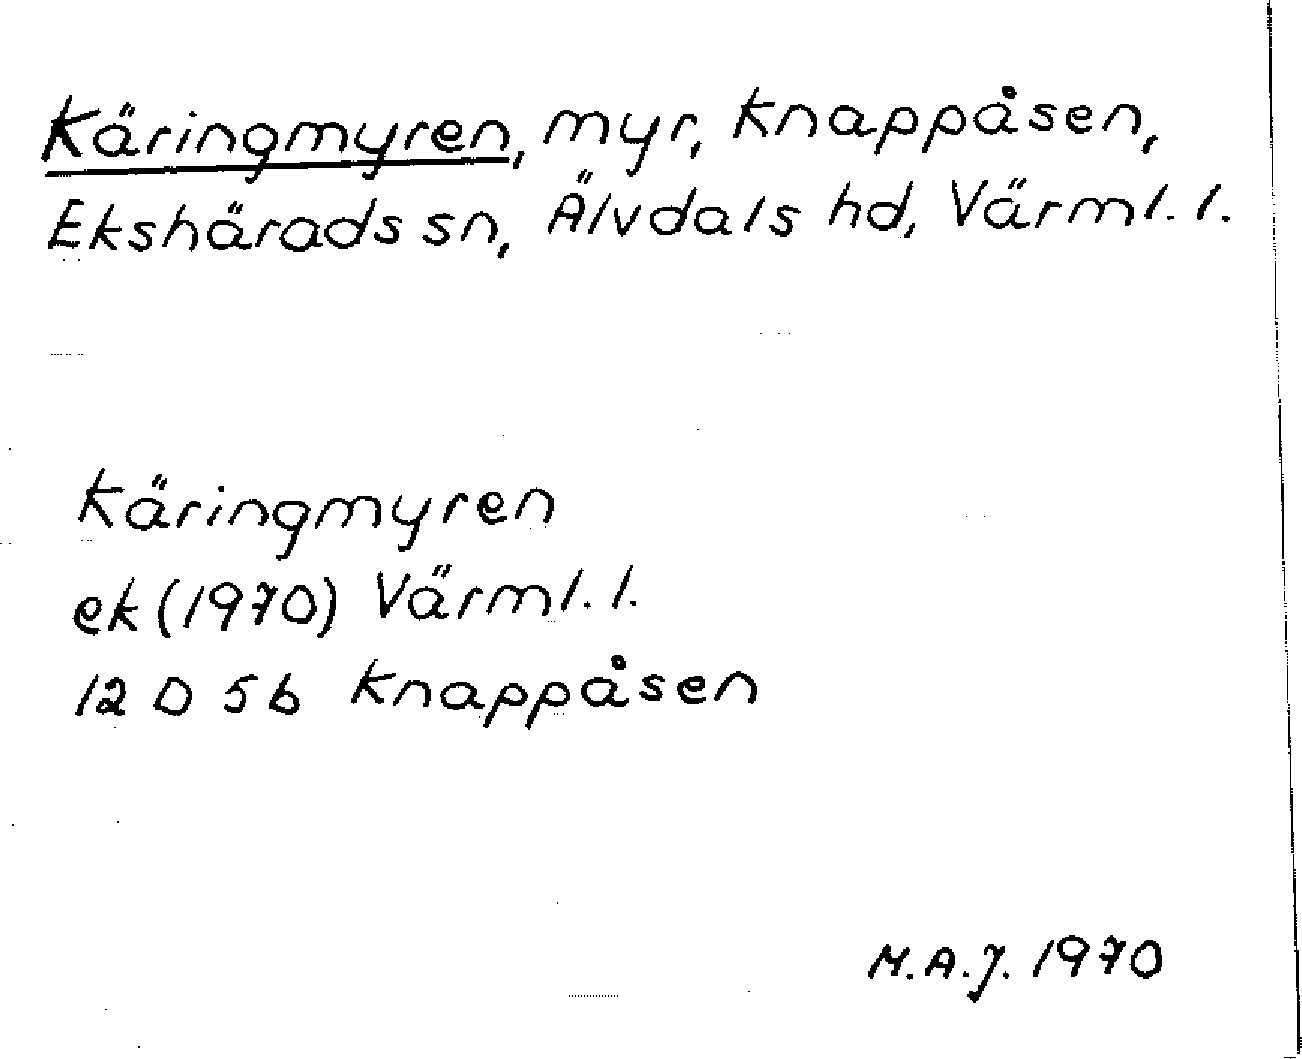 Käringmyren, myr, Knappåsen,
Ekshärads sn, Älvdals hd, Värml. l.
Käringmyren
ek (1970) Värml. l.
12 D 5b Knappåsen
M.A.J. 1970